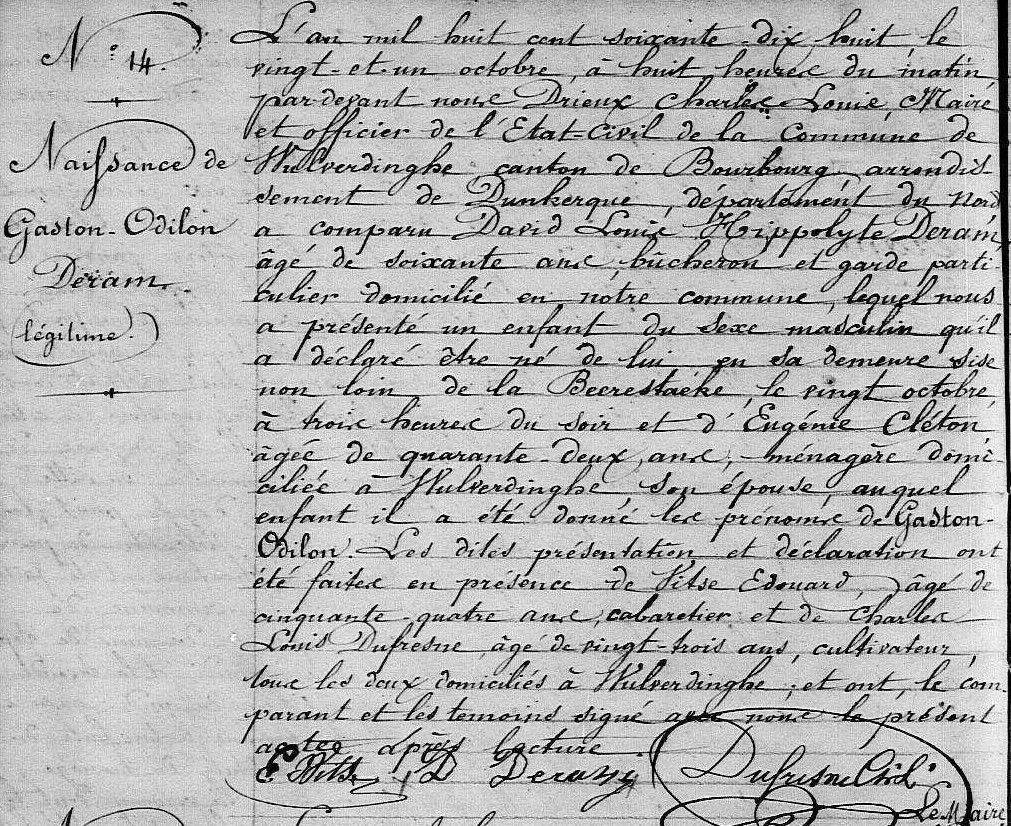 N° 14.
Naissance de
Gaston-Odilon
Deram.
(légitime.)
L'an mil huit cent soixante-dix huit, le
vingt-et-un octobre, à huit heures du matin
par-devant nous Drieux Charles Louis, Maire
et officier de l'Etat-Civil de la Commune de
Wulverdinghe canton de Bourbourg, arrondis-
sement de Dunkerque, département du Nord
a comparu David Louis Hippolyte Deram,
âgé de soixante ans, bûcheron et garde parti-
culier domicilié en notre commune, lequel nous
a présenté un enfant du sexe masculin qu'il
a déclaré être né de lui en sa demeure sise
non loin de la Beerestaeke, le vingt octobre,
à trois heures du soir et d'Eugénie Cléton
âgée de quarante-deux ans, ménagère domi-
ciliée à Wulverdinghe, son épouse, auquel
enfant il a été donné les prénoms de Gaston-
Odilon. Les dites présentation et déclaration ont
été faites en présence de Vitse Edouard, âgé de
cinquante-quatre ans, cabaretier et de Charles
Louis Dufresne, âgé de vingt-trois ans, cultivateur,
tous les deux domiciliés à Wulverdinghe; et ont, le com-
parant et les temoins signé avec nous le présent
acte après lecture.
E. Vitse D Deram Dufresne Chls
Le Maire,